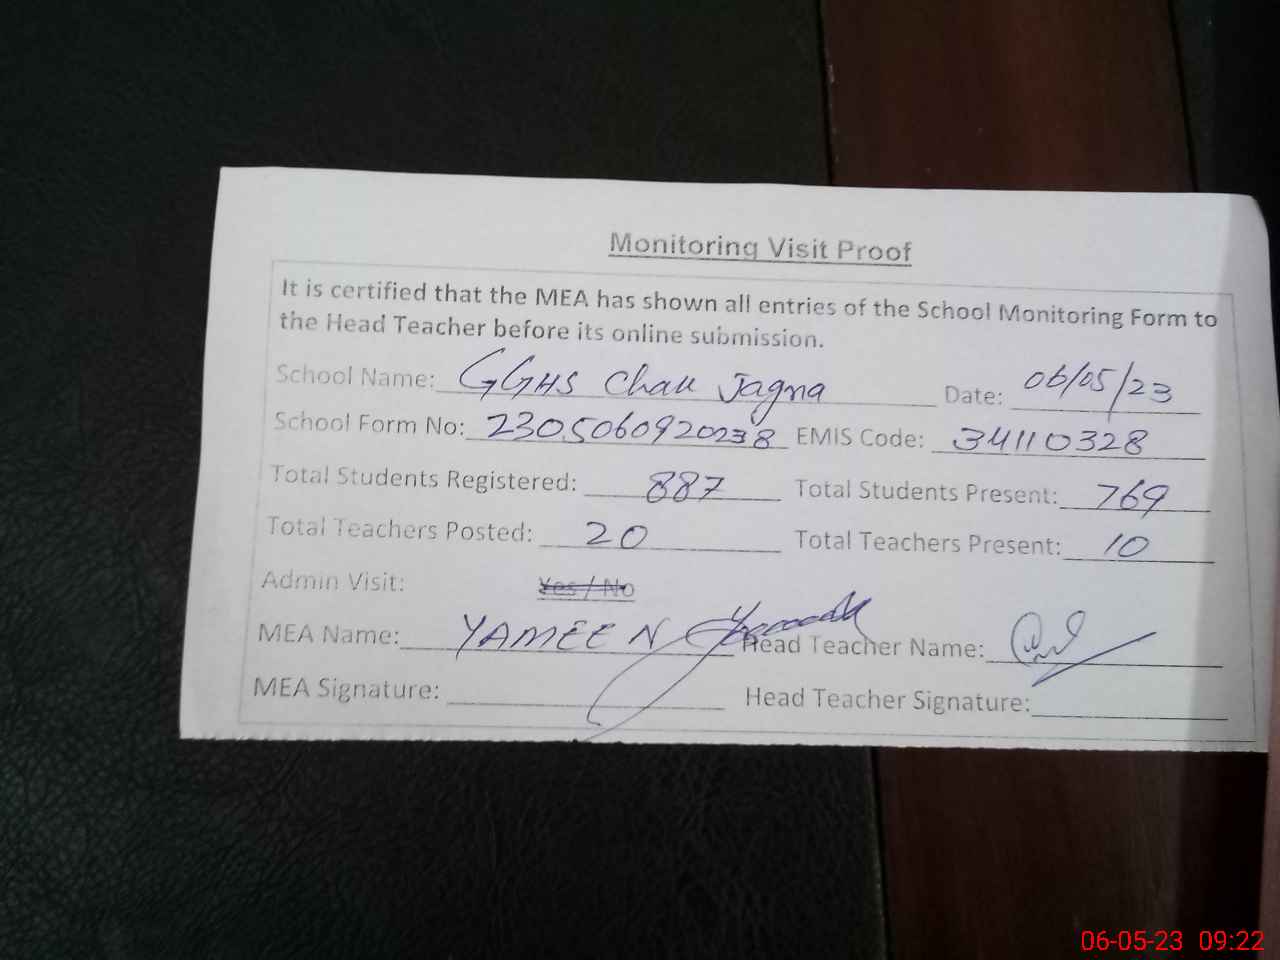 Monitoring Visit Proof
It is certified that the MEA has shown all entries of the School Monitoring Form to
the Head Teacher before its online submission.
School Name: GGHS Chak Jagna Date: 06/05/23
School Form No: 2305060920238 EMIS Code: 34110328
Total Students Registered: 887 Total Students Present: 769
Total Teachers Posted: 20 Total Teachers Present: 10
Admin Visit: Yes / No
MEA Name: YAMEEN Head Teacher Name:
MEA Signature: Head Teacher Signature:
06-05-23 09:22